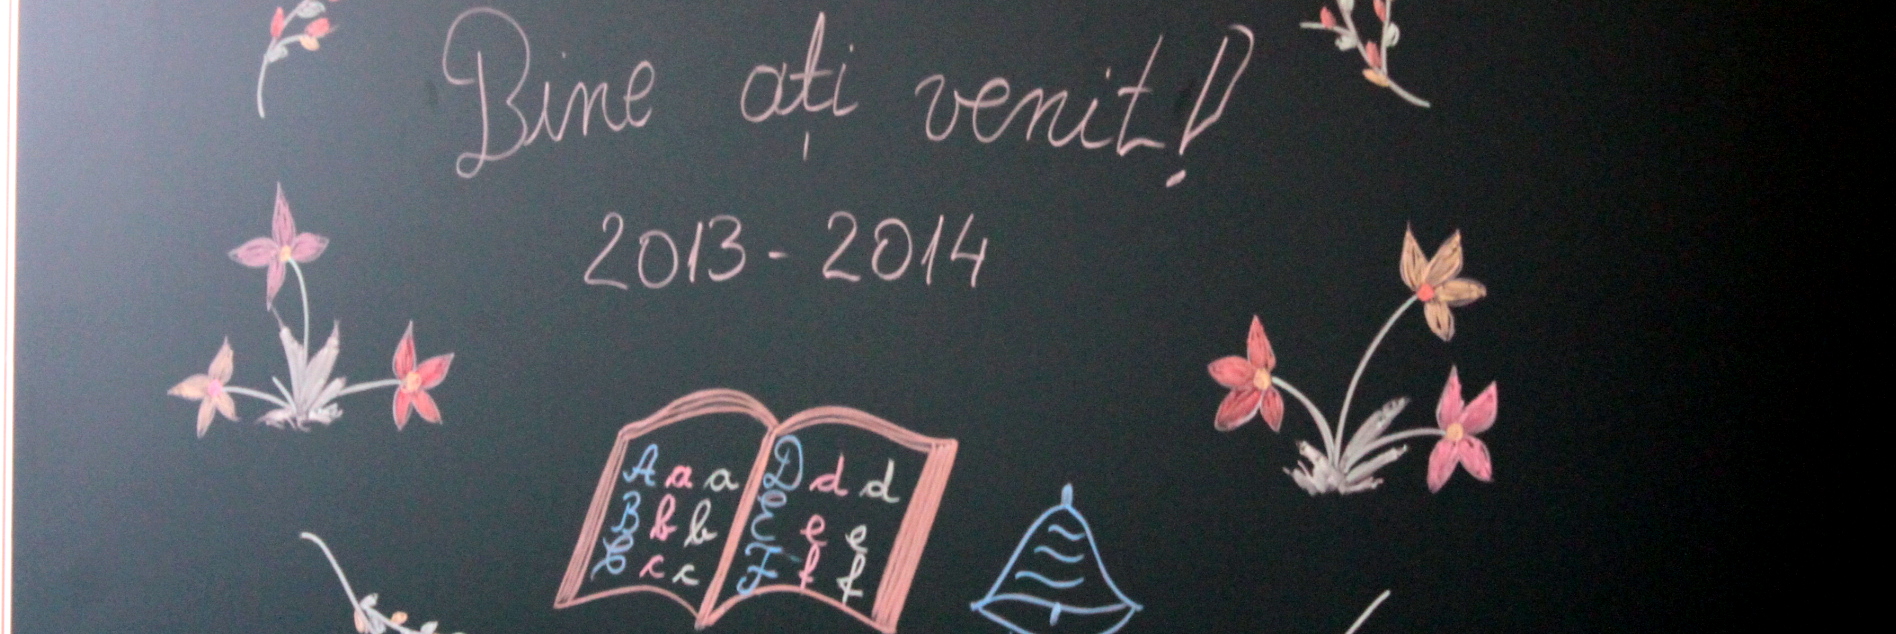 Bine ați venit!
2013-2014
A a a
B b b
C c c
D d d
E e e
F f f